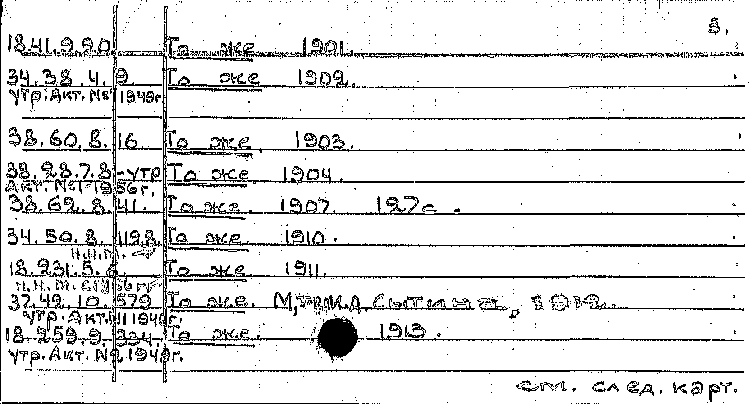 3.
18.41.9.90 То же 1901.
34.38.4.9 То же 1902.
утр. Акт. №1 1949г
38.60.8.16 То же. 1903.
38.28.7.8-утр То же 1904.
Акт. №1-1956г.
38.62.8.41. То же. 1907. 127с.
34.50.8.1198 То же 1910.
18.231.5.6 То же 1911.
37.42.10.579 То же. М, тип. Сытина, 1912.
утр. Акт. №1 1949г.
18.259.9.334 То же. 1913.
утр. Акт. №2 1949г.
см. след. карт.